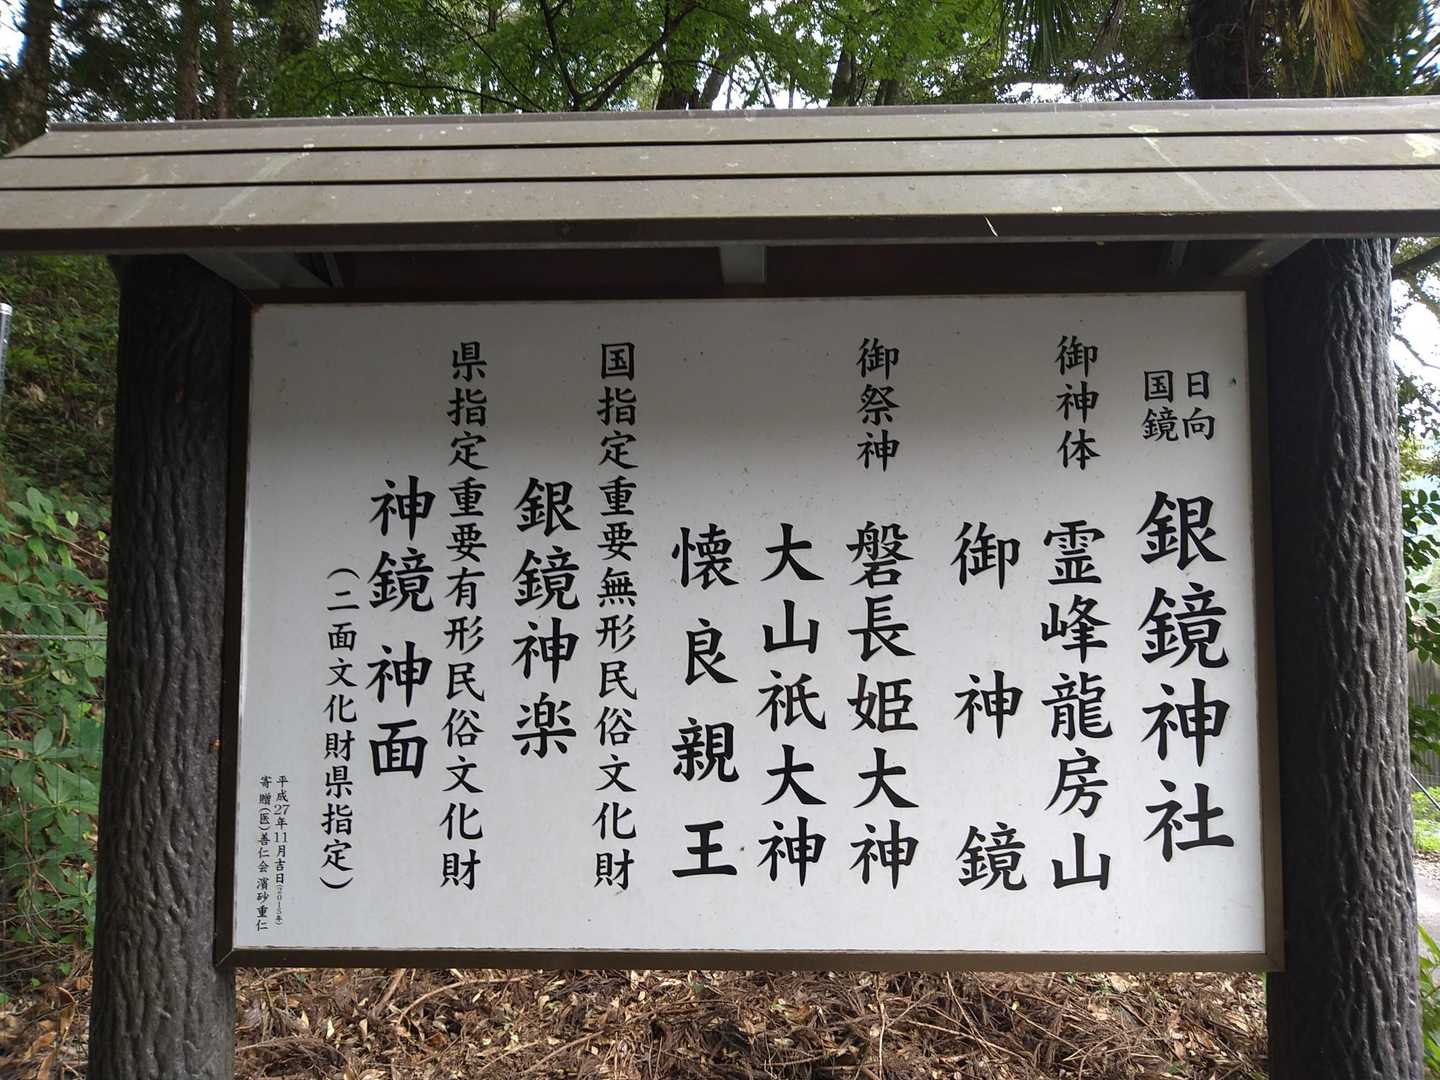 日向
国鏡
銀鏡神社
御神体
霊峰龍房山
御神鏡
御祭神
磐長姫大神
大山祇大神
懐良親王
国指定重要無形民俗文化財
銀鏡神楽
県指定重要有形民俗文化財
神鏡 神面
(二面文化財県指定)
平成27年11月吉日(2015年)
寄贈(医)善仁会 濱砂重仁